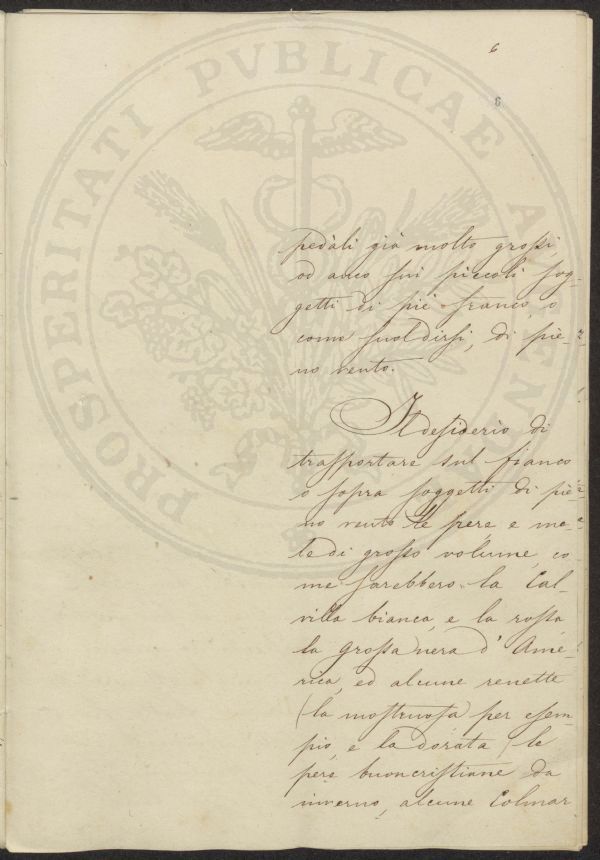 PROSPERITATI PVBLICAE AVGENDAE
6
6
pedali già molto grossi,
od anco sui piccoli sog-
getti di piè franco, o
come suol dirsi, di pie-
no vento.
Il desiderio di
trasportare sul fianco
o sopra soggetti di pie-
no vento le pere e me-
le di grosso volume, co-
me sarebbero la Cal-
villa bianca, e la rossa,
la grossa nera d'Ame-
rica, ed alcune renette
(la mostruosa per esem-
pio, e la dorata) le
pere buoncristiane da
inverno, alcune Colmar